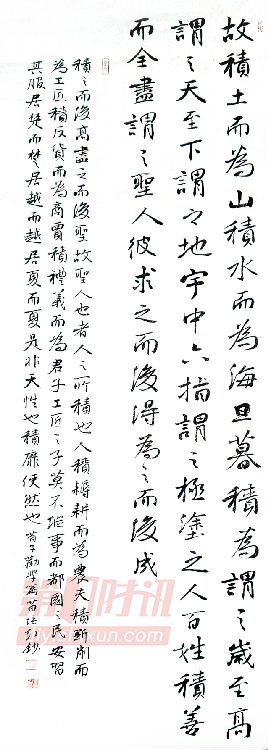 故積土而為山積水而為海旦暮積為謂之歲至高
謂之天至下謂之地宇中六指謂之極塗之人百姓積善
而全盡謂之聖人彼求之而後得為之而後成
積之而後高盡之而後聖故聖人也者人之所積也人積耨耕而為農夫積斲削而
為工匠積反貨而為商賈積禮義而為君子工匠之子莫不繼事而都國之民安習
其服居楚而楚居越而越居夏而夏是非天性也積靡使然也荀子勸學篇 鈔